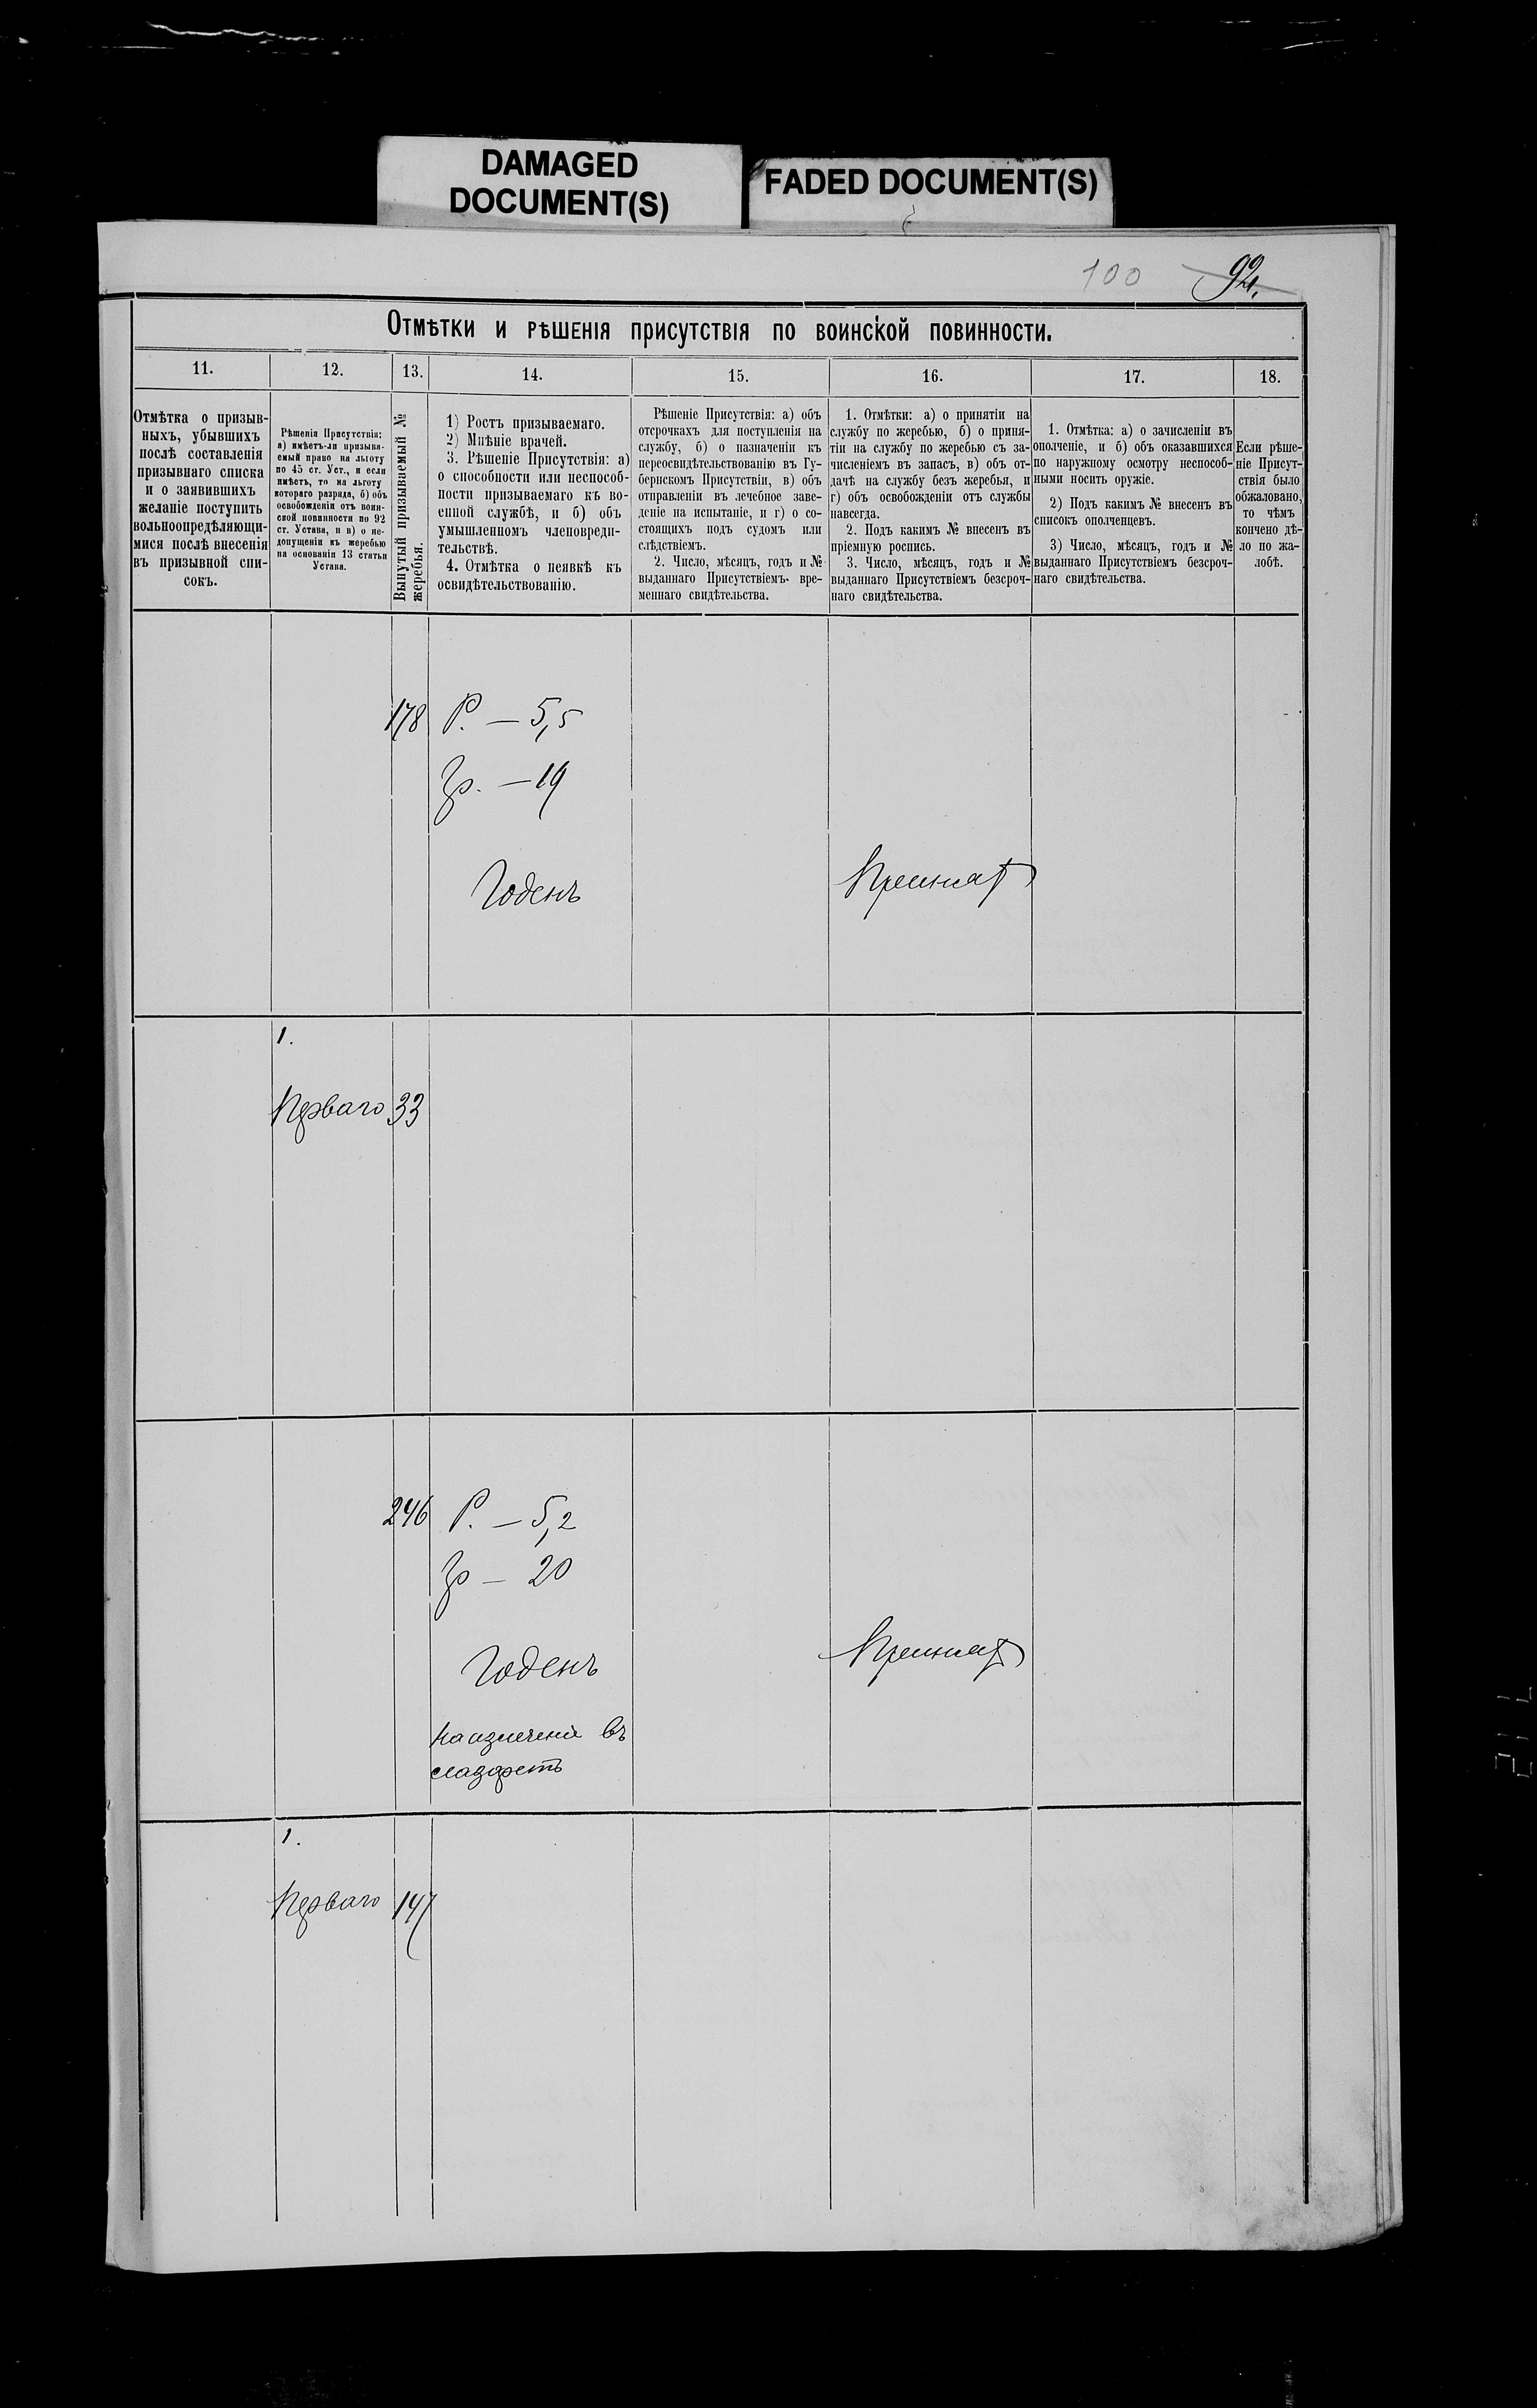 DAMAGED
DOCUMENT(S)
FADED DOCUMENT(S)
100 92.
Отмѣтки и рѣшенія присутствія по воинской повинности.
11. 12. 13. 14. 15. 16. 17. 18.
Отмѣтка о призыв-
ныхъ, убывшихъ
послѣ составленія
призывнаго списка
и о заявившихъ
желаніе поступить
вольноопредѣляющи-
мися послѣ внесенія
въ призывной спи-
сокъ.
Рѣшенія Присутствія:
а) имѣетъ-ли призыва-
емый право на льготу
по 45 ст. Уст., и если
имѣетъ, то на льготу
котораго разряда, б) объ
освобожденіи отъ воин-
ской повинности по 92
ст. Устава, и в) о не-
допущеніи къ жеребью
на основаніи 13 статьи
Устава.
Вынутый призываемый №
жеребья.
1) Ростъ призываемаго.
2) Мнѣніе врачей.
3. Рѣшеніе Присутствія: а)
о способности или неспособ-
ности призываемаго къ во-
енной службѣ, и б) объ
умышленномъ членовреди-
тельствѣ.
4. Отмѣтка о неявкѣ къ
освидѣтельствованію.
Рѣшеніе Присутствія: а) объ
отсрочкахъ для поступленія на
службу, б) о назначеніи къ
переосвидѣтельствованію въ Гу-
бернскомъ Присутствіи, в) объ
отправленіи въ лечебное заве-
деніе на испытаніе, и г) о со-
стоящихъ подъ судомъ или
слѣдствіемъ.
2. Число, мѣсяцъ, годъ и №
выданнаго Присутствіемъ вре-
меннаго свидѣтельства.
1. Отмѣтки: а) о принятіи на
службу по жеребью, б) о приня-
тіи на службу по жеребью съ за-
численіемъ въ запасъ, в) объ от-
дачѣ на службу безъ жеребья, и
г) объ освобожденіи отъ службы
навсегда.
2. Подъ какимъ № внесенъ въ
пріемную роспись.
3. Число, мѣсяцъ, годъ и №
выданнаго Присутствіемъ безсроч-
наго свидѣтельства.
1. Отмѣтка: а) о зачисленіи въ
ополченіе, и б) объ оказавшихся
по наружному осмотру неспособ-
ными носить оружіе.
2) Подъ какимъ № внесенъ въ
списокъ ополченцевъ.
3) Число, мѣсяцъ, годъ и №
выданнаго Присутствіемъ безсроч-
наго свидѣтельства.
Если рѣше-
ніе Присут-
ствія было
обжаловано,
то чѣмъ
кончено дѣ-
ло по жа-
лобѣ.
178 Р. — 5,5
Гр. — 19
Годенъ
Принят
1.
Перваго 33
246 Р. — 5,2
Гр — 20
Годенъ
Принят
назначеніе въ
лазаретъ
1.
Перваго 147